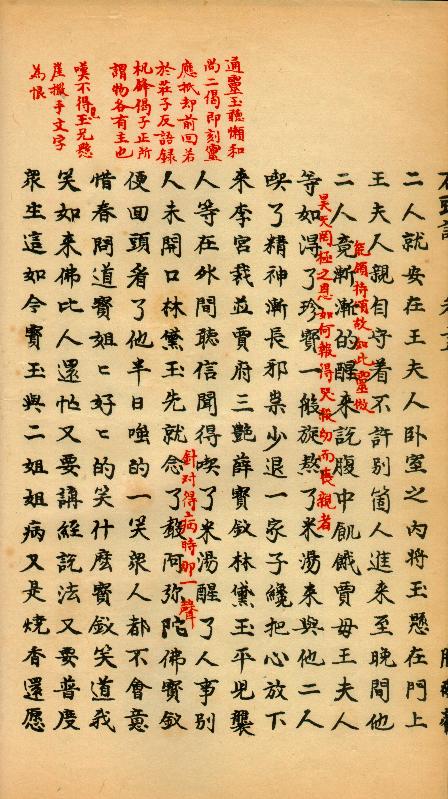 通靈玉聴懶和
尚二偈即刻靈
應抵却前回若
於莊子反語錄
机鋒偈子正所
謂物各有主也
嘆不得見玉兄懸
崖撒手文字
為恨
二人就安在王夫人卧室之內將玉懸在門上
王夫人親自守着不許别箇人進來至晚間他
能領持頌故如此靈效
二人竟漸漸的醒來說腹中飢餓賈母王夫人
昊天罔極之恩如何報得哭殺幼而喪親者
等如淂了珍寶一般旋熬了米湯來與他二人
喫了精神漸長邪祟少退一家子纔把心放下
來李宮裁並賈府三艷薛寶釵林黛玉平兒襲
人等在外間聴信聞得喫了米湯醒了人事别
針对得病時那一聲
人未開口林黛玉先就念了聲阿弥陀佛寶釵
便回頭看了他半日嗤的一笑衆人都不會意
惜春問道寳姐〻好〻的笑什麽寳釵笑道我
笑如來佛比人還忙又要講經說法又要普度
衆生這如今寳玉與二姐姐病又是燒香還愿